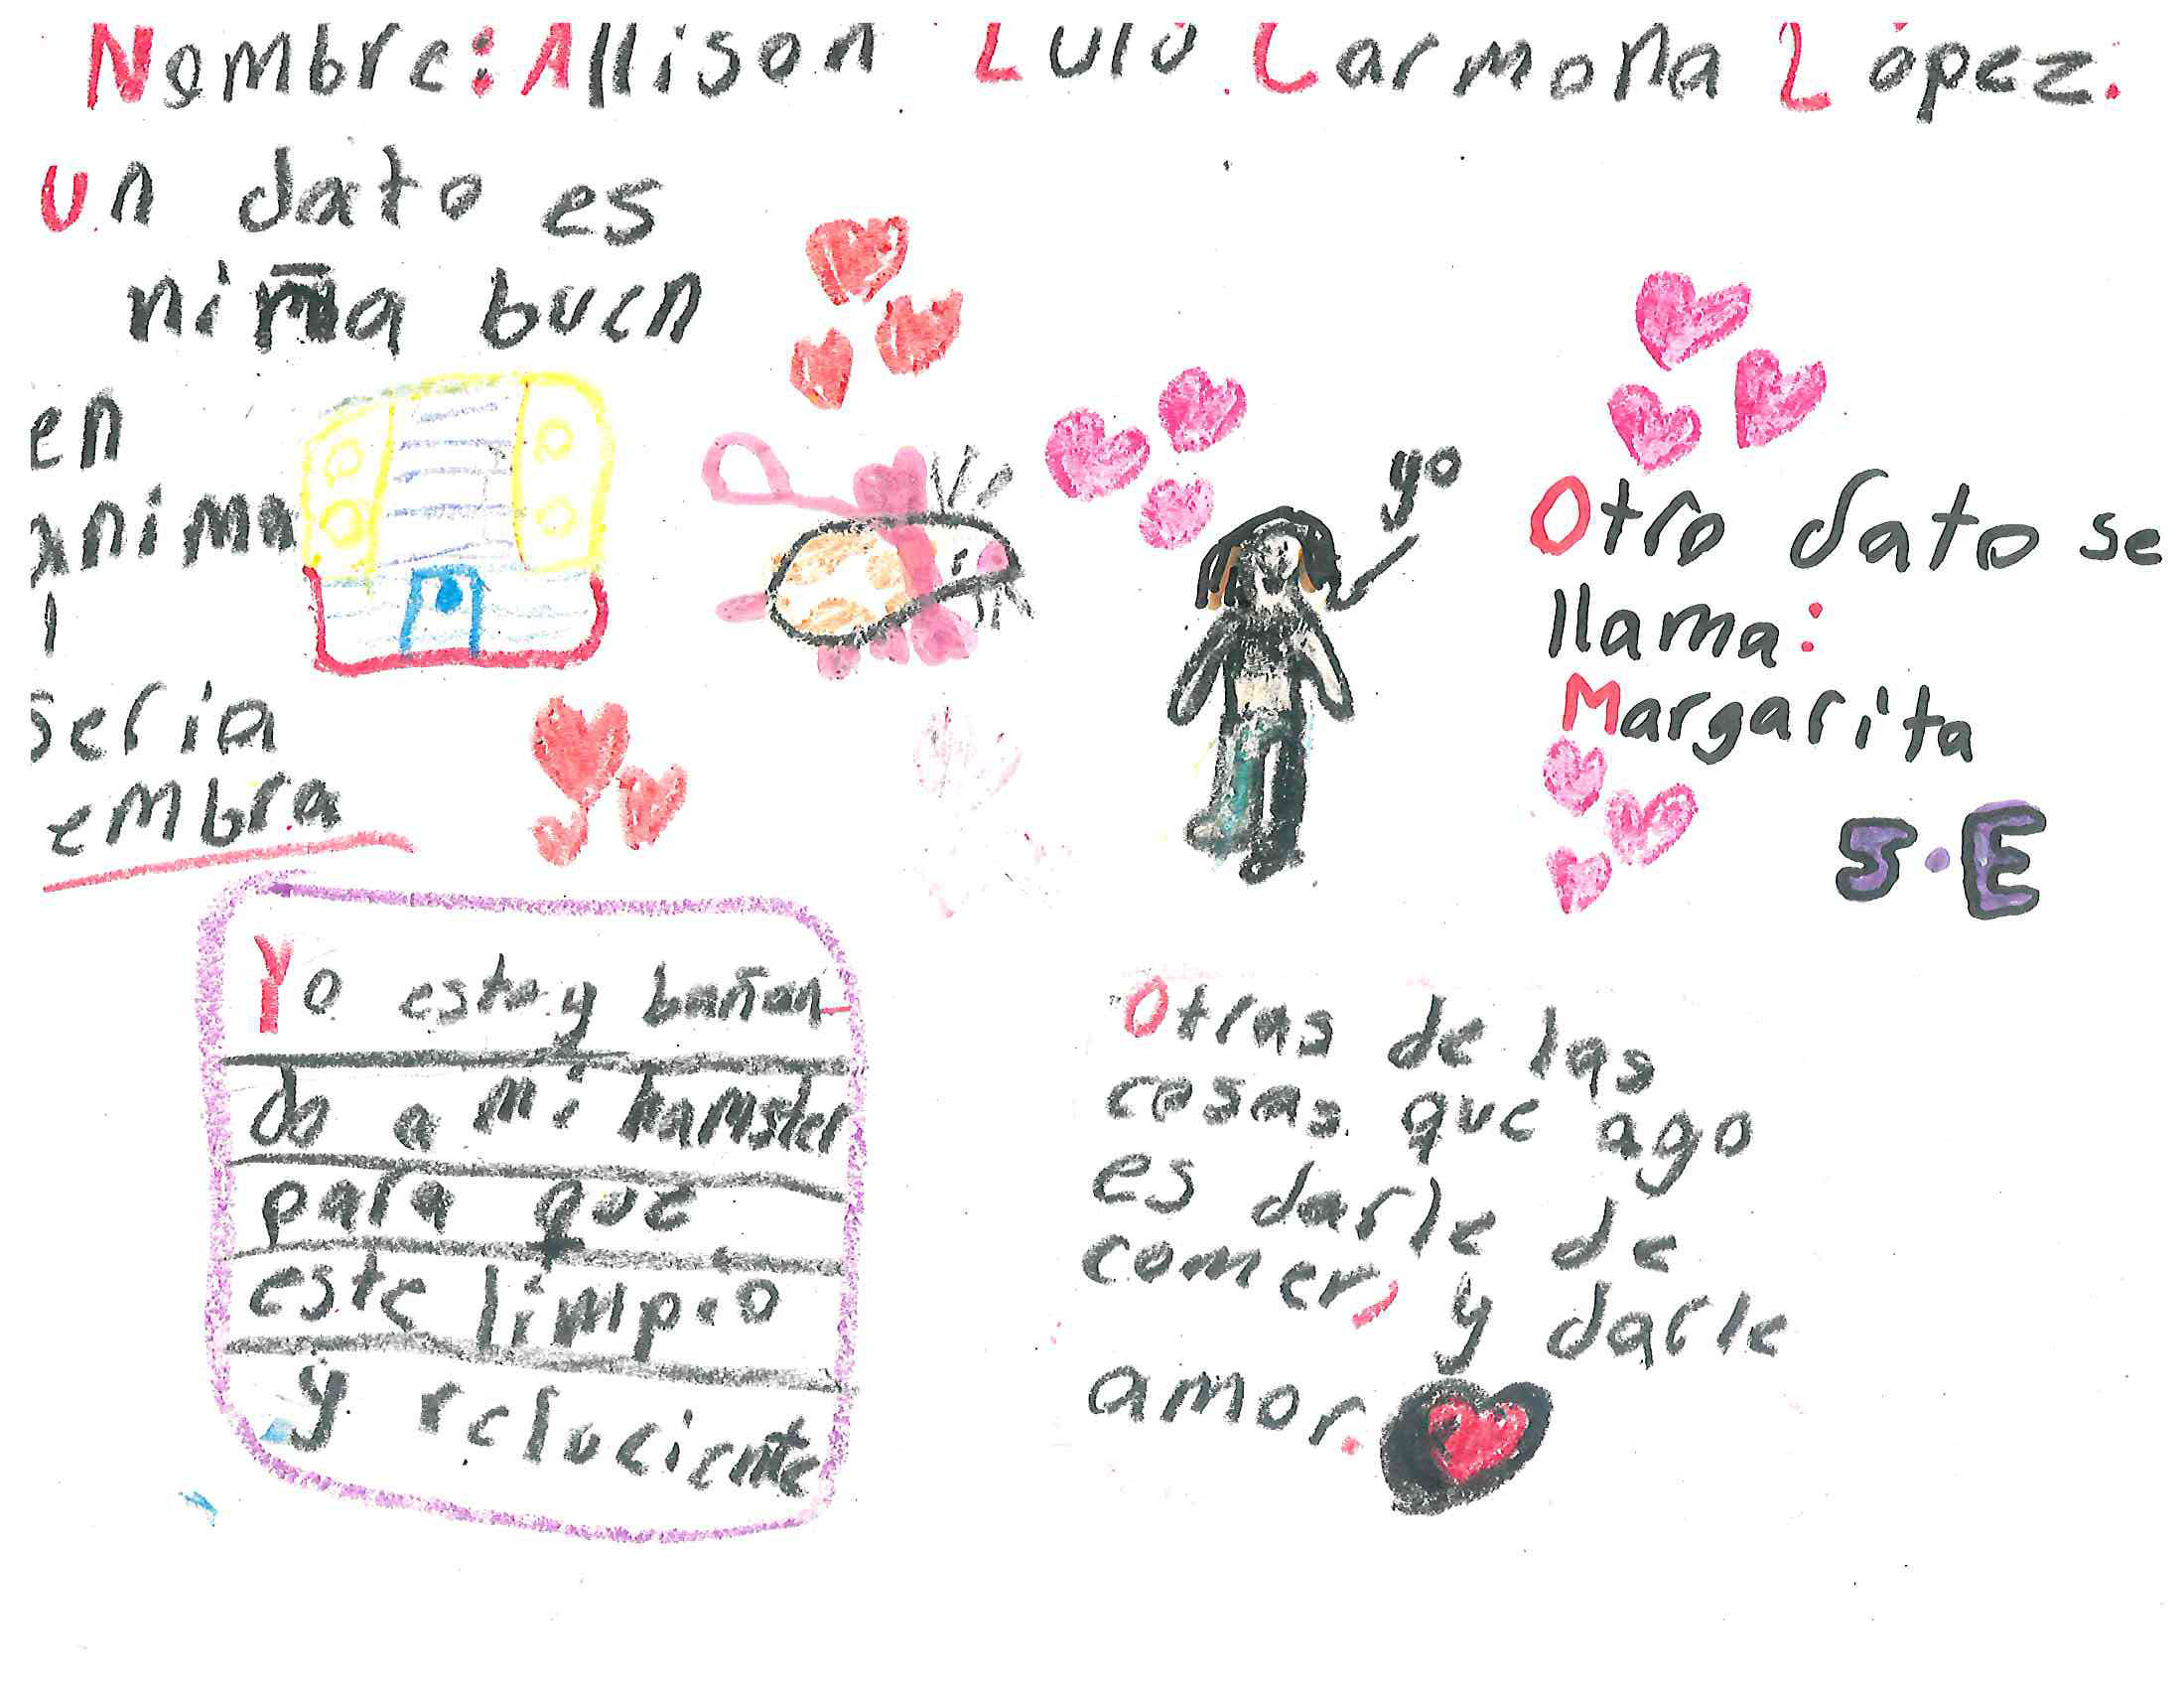 Nombre: Allison Lulú Carmona López.
Un dato es
niña buen
en
anima
l
seria
embra
yo
Otro dato se
llama:
Margarita
5.E
Yo estoy bañan-
do a mi hamster
para que
este limpio
y reluciente
Otras de las
cosas que ago
es darle de
comer, y darle
amor.